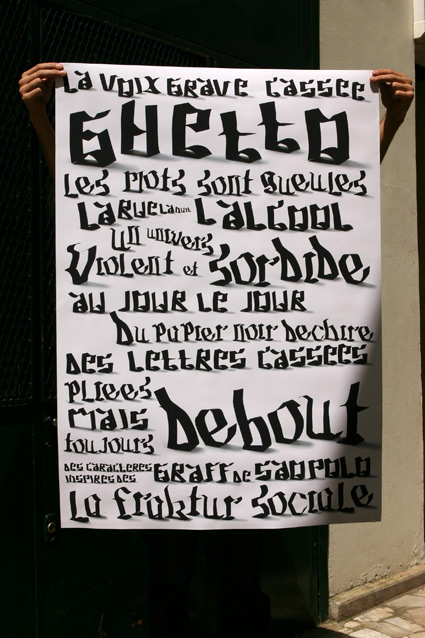 La voix grave cassee
Ghetto
Les mots sont gueules
La rue La nuit L'alcool
Un univers
Violent et sordide
au jour le jour
Du papier noir dechire
Des lettres cassees
pliees
mais
toujours
Debout
Des caracteres
inspires des
Graff de Sao Polo
La fraktur sociale